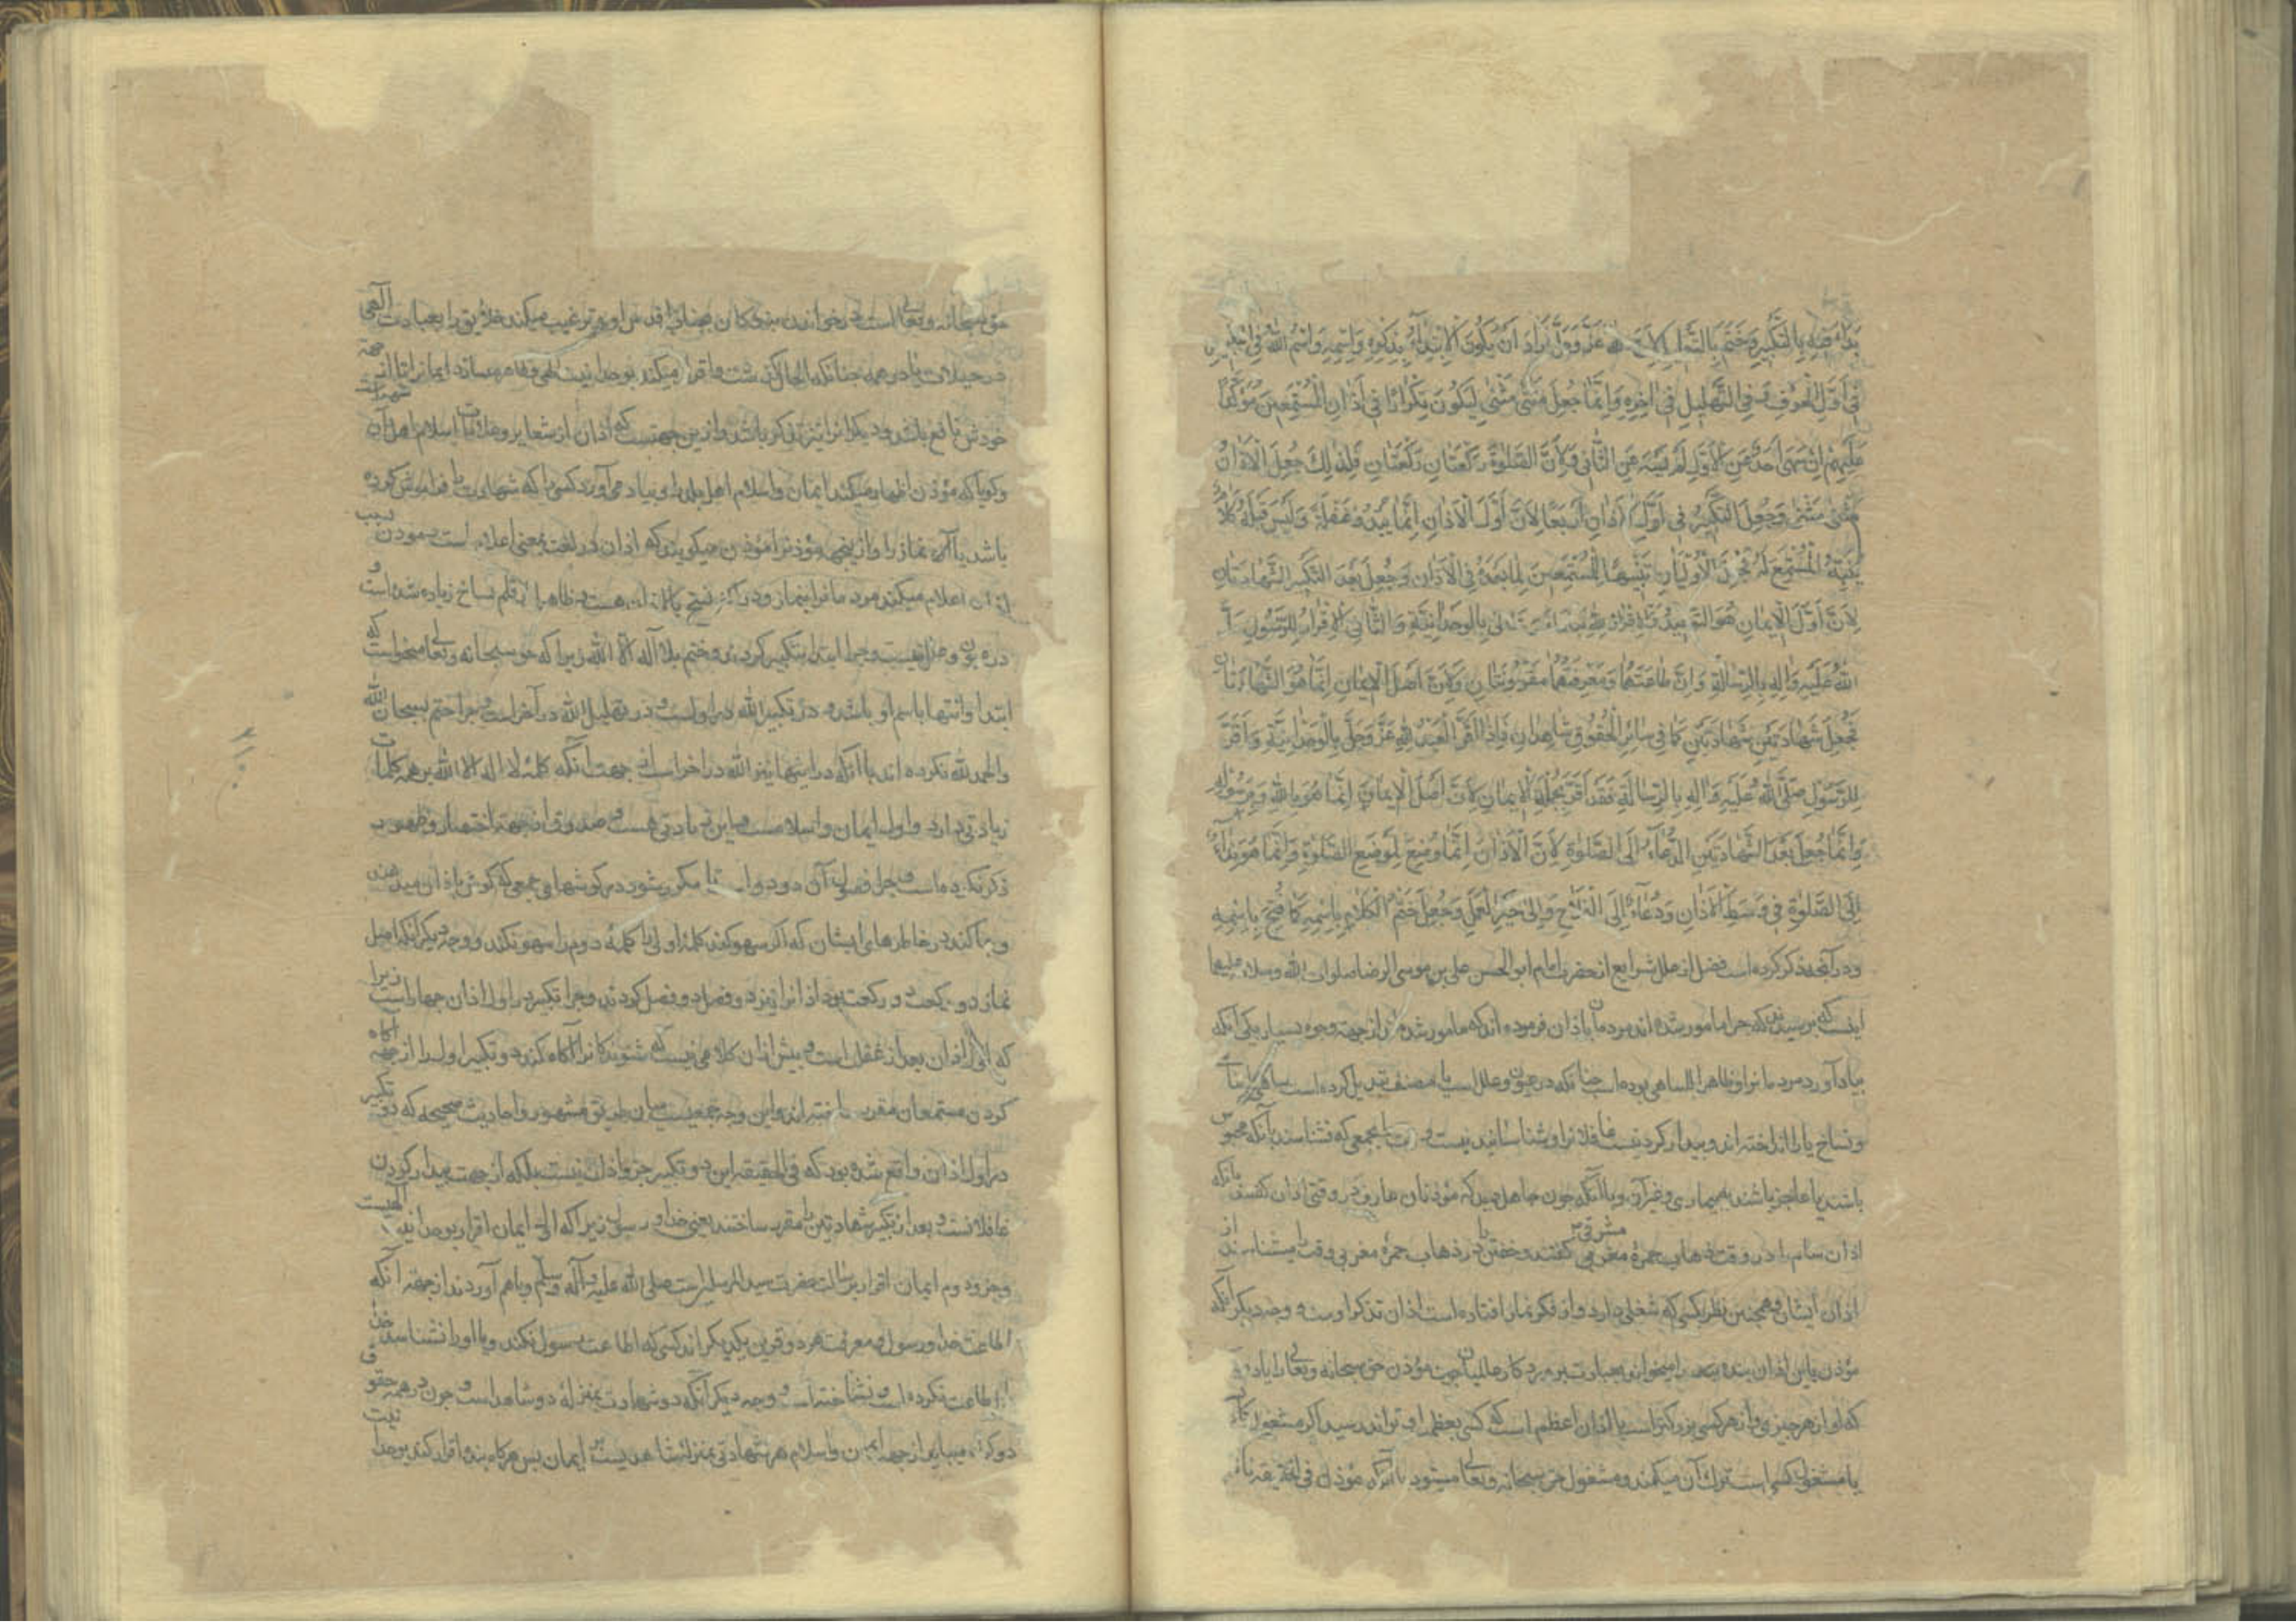 بَدَأَ فِيهِ بِالتَّكْبِيرِ وَخَتَمَ بِالتَّهْلِيلِ لِأَنَّ اللهَ عَزَّ وَجَلَّ أَرَادَ أَنْ يَكُونَ الْاِبْتِدَاءُ بِذِكْرِهِ وَاسْمِهِ وَاسْمُ اللهِ فِي التَّكْبِيرِ
فِي أَوَّلِ الْحَرْفِ وَفِي التَّهْلِيلِ فِي آخِرِهِ وَاِنَّمَا جُعِلَ مَثْنٰى مَثْنٰى لِيَكُونَ تِكْرَارًا فِي آذَانِ الْمُسْتَمِعِينَ مُؤَكَّدًا
عَلَيْهِمْ اِنْ سَهَى أَحَدٌ عَنِ الْأَوَّلِ لَمْ يَسْهَ عَنِ الثَّانِي وَلِأَنَّ الصَّلٰوةَ رَكْعَتَانِ رَكْعَتَانِ فَلِذٰلِكَ جُعِلَ الْأَذَانُ
مَثْنٰى مَثْنٰى وَجُعِلَ التَّكْبِيرُ فِي أَوَّلِ الْأَذَانِ أَرْبَعًا لِأَنَّ أَوَّلَ الْأَذَانِ اِنَّمَا يَبْدُو غَفْلَةً وَلَيْسَ قَبْلَهُ كَلَامٌ
يُنَبِّهُ الْمُسْتَمِعَ لَهُ فَجُعِلَ الْأُولَيَانِ تَنْبِيهًا لِلْمُسْتَمِعِينَ لِمَا بَعْدَهُ فِي الْأَذَانِ وَجُعِلَ بَعْدَ التَّكْبِيرِ الشَّهَادَتَانِ
لِأَنَّ أَوَّلَ الْإِيمَانِ هُوَ التَّوْحِيدُ وَالْاِقْرَارُ لِلّٰهِ تَبَارَكَ وَتَعَالٰى بِالْوَحْدَانِيَّةِ وَالثَّانِي الْاِقْرَارُ لِلرَّسُولِ صَلَّى
اللهُ عَلَيْهِ وَاٰلِهِ بِالرِّسَالَةِ وَاِنَّ طَاعَتَهُمَا وَمَعْرِفَتَهُمَا مَقْرُونَتَانِ وَلِأَنَّ أَصْلَ الْإِيمَانِ اِنَّمَا هُوَ الشَّهَادَتَانِ
فَجُعِلَ شَهَادَتَيْنِ شَهَادَتَيْنِ كَمَا فِي سَائِرِ الْحُقُوقِ شَاهِدَانِ فَاِذَا أَقَرَّ الْعَبْدُ لِلّٰهِ عَزَّ وَجَلَّ بِالْوَحْدَانِيَّةِ وَأَقَرَّ
لِلرَّسُولِ صَلَّى اللهُ عَلَيْهِ وَاٰلِهِ بِالرِّسَالَةِ فَقَدْ أَقَرَّ بِجُمْلَةِ الْإِيمَانِ لِأَنَّ أَصْلَ الْإِيمَانِ اِنَّمَا هُوَ بِاللهِ وَبِرَسُولِهِ
وَاِنَّمَا جُعِلَ بَعْدَ الشَّهَادَتَيْنِ الدُّعَاءُ اِلَى الصَّلٰوةِ لِأَنَّ الْأَذَانَ اِنَّمَا وُضِعَ لِمَوْضِعِ الصَّلٰوةِ وَاِنَّمَا هُوَ نِدَاءٌ
اِلَى الصَّلٰوةِ فِي وَسَطِ الْأَذَانِ وَدُعَاءٌ اِلَى الْفَلَاحِ وَاِلٰى خَيْرِ الْعَمَلِ وَجُعِلَ خَتْمُ الْكَلَامِ بِاسْمِهِ كَمَا فُتِحَ بِاسْمِهِ
ودر آنچه ذکر کرده است فضل از علل شرایع از حضرت امام ابو الحسن علی بن موسی الرضا صلوات الله وسلامه علیهما
اینست که پرسیدند که چرا مامور شده اند مردمان باذان فرموده اند که مامور شدند از جهة وجوه بسیار یکی آنکه
بیاد آورد مردمانرا وظاهرا للساهی بوده است چنانکه در عیون وعلل است یا مصنف تبدیل کرده است
ونساخ یا را انداخته اند وبیدار کردنست غافلانرا وشناسانیدنیست وقت را بجمعی که نشناسند بآنکه محبوس
باشند یا عاجز باشند به بیماری وغیر آن ویا آنکه چون جاهل میدکه مؤذنان عارف در وقتی اذان گفتند بآنکه
اذان شام را در وقت ذهاب حمرهٔ مشرقی گفتند وخفتن را در ذهاب حمرهٔ مغربی وقت را میشناسند از
اذان ایشان وهمچنین نظر بکسی که شغلی دارد واز فکر نماز افتاده است اذان تذکر اوست و وجه دیگر آنکه
مؤذن باین اذان بنده را میخواند بعبادت پروردگار عالمیان چون مؤذن حق سبحانه وتعالی را یاد
که او از هر چیزی واز هر کسی بزرگتر است با اذان اعظم است که کسی بعظمت او تواند رسید اگر مشغول کاری
یا مشغول کسی است ترک آن میکند ومشغول حق سبحانه وتعالی میشود با آنکه مؤذن فی الحقیقه
حق سبحانه وتعالی است در خواندن بندگان بفضای اقدس او وترغیب میکند خلایق را بعبادت الهی
در حیعلات یا در همه چنانکه الحال گذشت واقرار میکند بوحدانیت الهی وظاهر میسازد ایمانرا تا از جهة
خودش نافع باشد ودیگرانرا نیز مذکر باشد وازین جهتست که اذان از شعایر وعلامات اسلام اهل آن شهر است
وگویا که مؤذن اظهار میکند ایمان واسلام اهل بلد را وبیاد می آورد کسی را که شهادت را فراموش کرده
باشد یا آنکه نماز را وازینجهة مؤذنرا مؤذن میگویند که اذان در لغت بمعنی اعلام است بسبب نمودن
اذان اعلام میکند مردمانرا بنماز ودر اکثر نسخ بالاذان هست وظاهرا از قلم نساخ زیاده شده است و
در عیون وعلل نیست وچرا ابتدا بتکبیر کردند وختم بلا اله الا الله زیرا که حق سبحانه وتعالی میخواست که
ابتدا وانتها باسم او باشد ودر تکبیر الله در اولست ودر تهلیل الله در آخر است وچرا ختم بسبحان الله
والحمد لله نکرده اند با آنکه در اینها نیز الله در آخر است از جهت آنکه کلمهٔ لا اله الا الله بر همه کلمات
زیادتی دارد واول ایمان واسلامست واین زیادتی هست وصدوق از جهة اختصار وظهور
ذکر نکرده است وچرا فصول آن دو دو است تا مکرر شود در گوشهای جمعی که گوش باذان میدهند
وجا کند در خاطرهای ایشان که اگر سهو کنند کلمهٔ اولی را کلمهٔ دوم را سهو نکند و وجه دیگر آنکه اصل
نماز دو رکعت دو رکعت بود اذانرا نیز دو فصل دو فصل کردند وچرا تکبیر در اول اذان چهار است زیرا
که اول اذان بعد از غفلت است وپیش از آن کلامی نیست که شنوندگانرا آگاه کند دو تکبیر اول را از جهة آگاه
کردن مستمعان مقرر ساخته اند واین وجه جمعیست میان طریق مشهور واحادیث صحیحه که دو تکبیر
در اول اذان واقع شده بود که فی الحقیقه این دو تکبیر جزو اذان نیست بلکه از جهت بیدار کردن
غافلانست وبعد از تکبیر شهادتین را مقرر ساختند یعنی خدا ورسول زیرا که اول ایمان اقرار بوحدانیت الهیست
وجزو دوم ایمان اقرار برسالت حضرت سید المرسلین است صلی الله علیه وآله وسلم وباهم آوردند از جهة آنکه
اطاعت خدا ورسول ومعرفت هر دو قرین یکدیگرند کسی که اطاعت رسول نکند ویا او را نشناسد خدا را
اطاعت نکرده است ونشناخته است و وجه دیگر آنکه دو شهادت بمنزلهٔ دو شاهد است وچون در همه حقوق
دو گواه میباید از جهة ایمان واسلام هر شهادتی بمنزلهٔ شاهدیست بر ایمان پس هرگاه بنده اقرار کند بوحدانیت